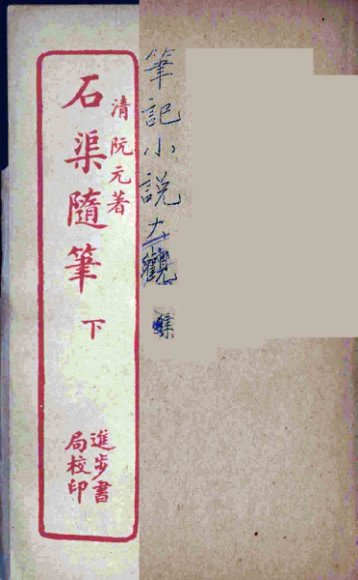 筆記小説大觀
清 阮元著
石渠隨筆 下
進步書
局校印